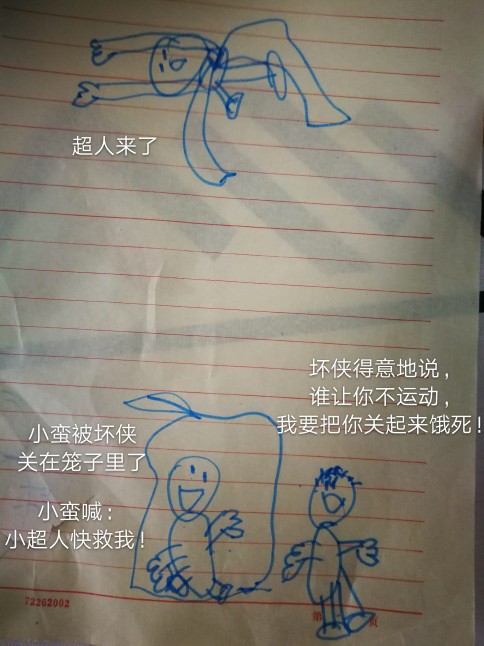 超人来了
坏侠得意地说，
谁让你不运动，
我要把你关起来饿死！
小蛮被坏侠
关在笼子里了
小蛮喊：
小超人快救我！
72262002
第
页